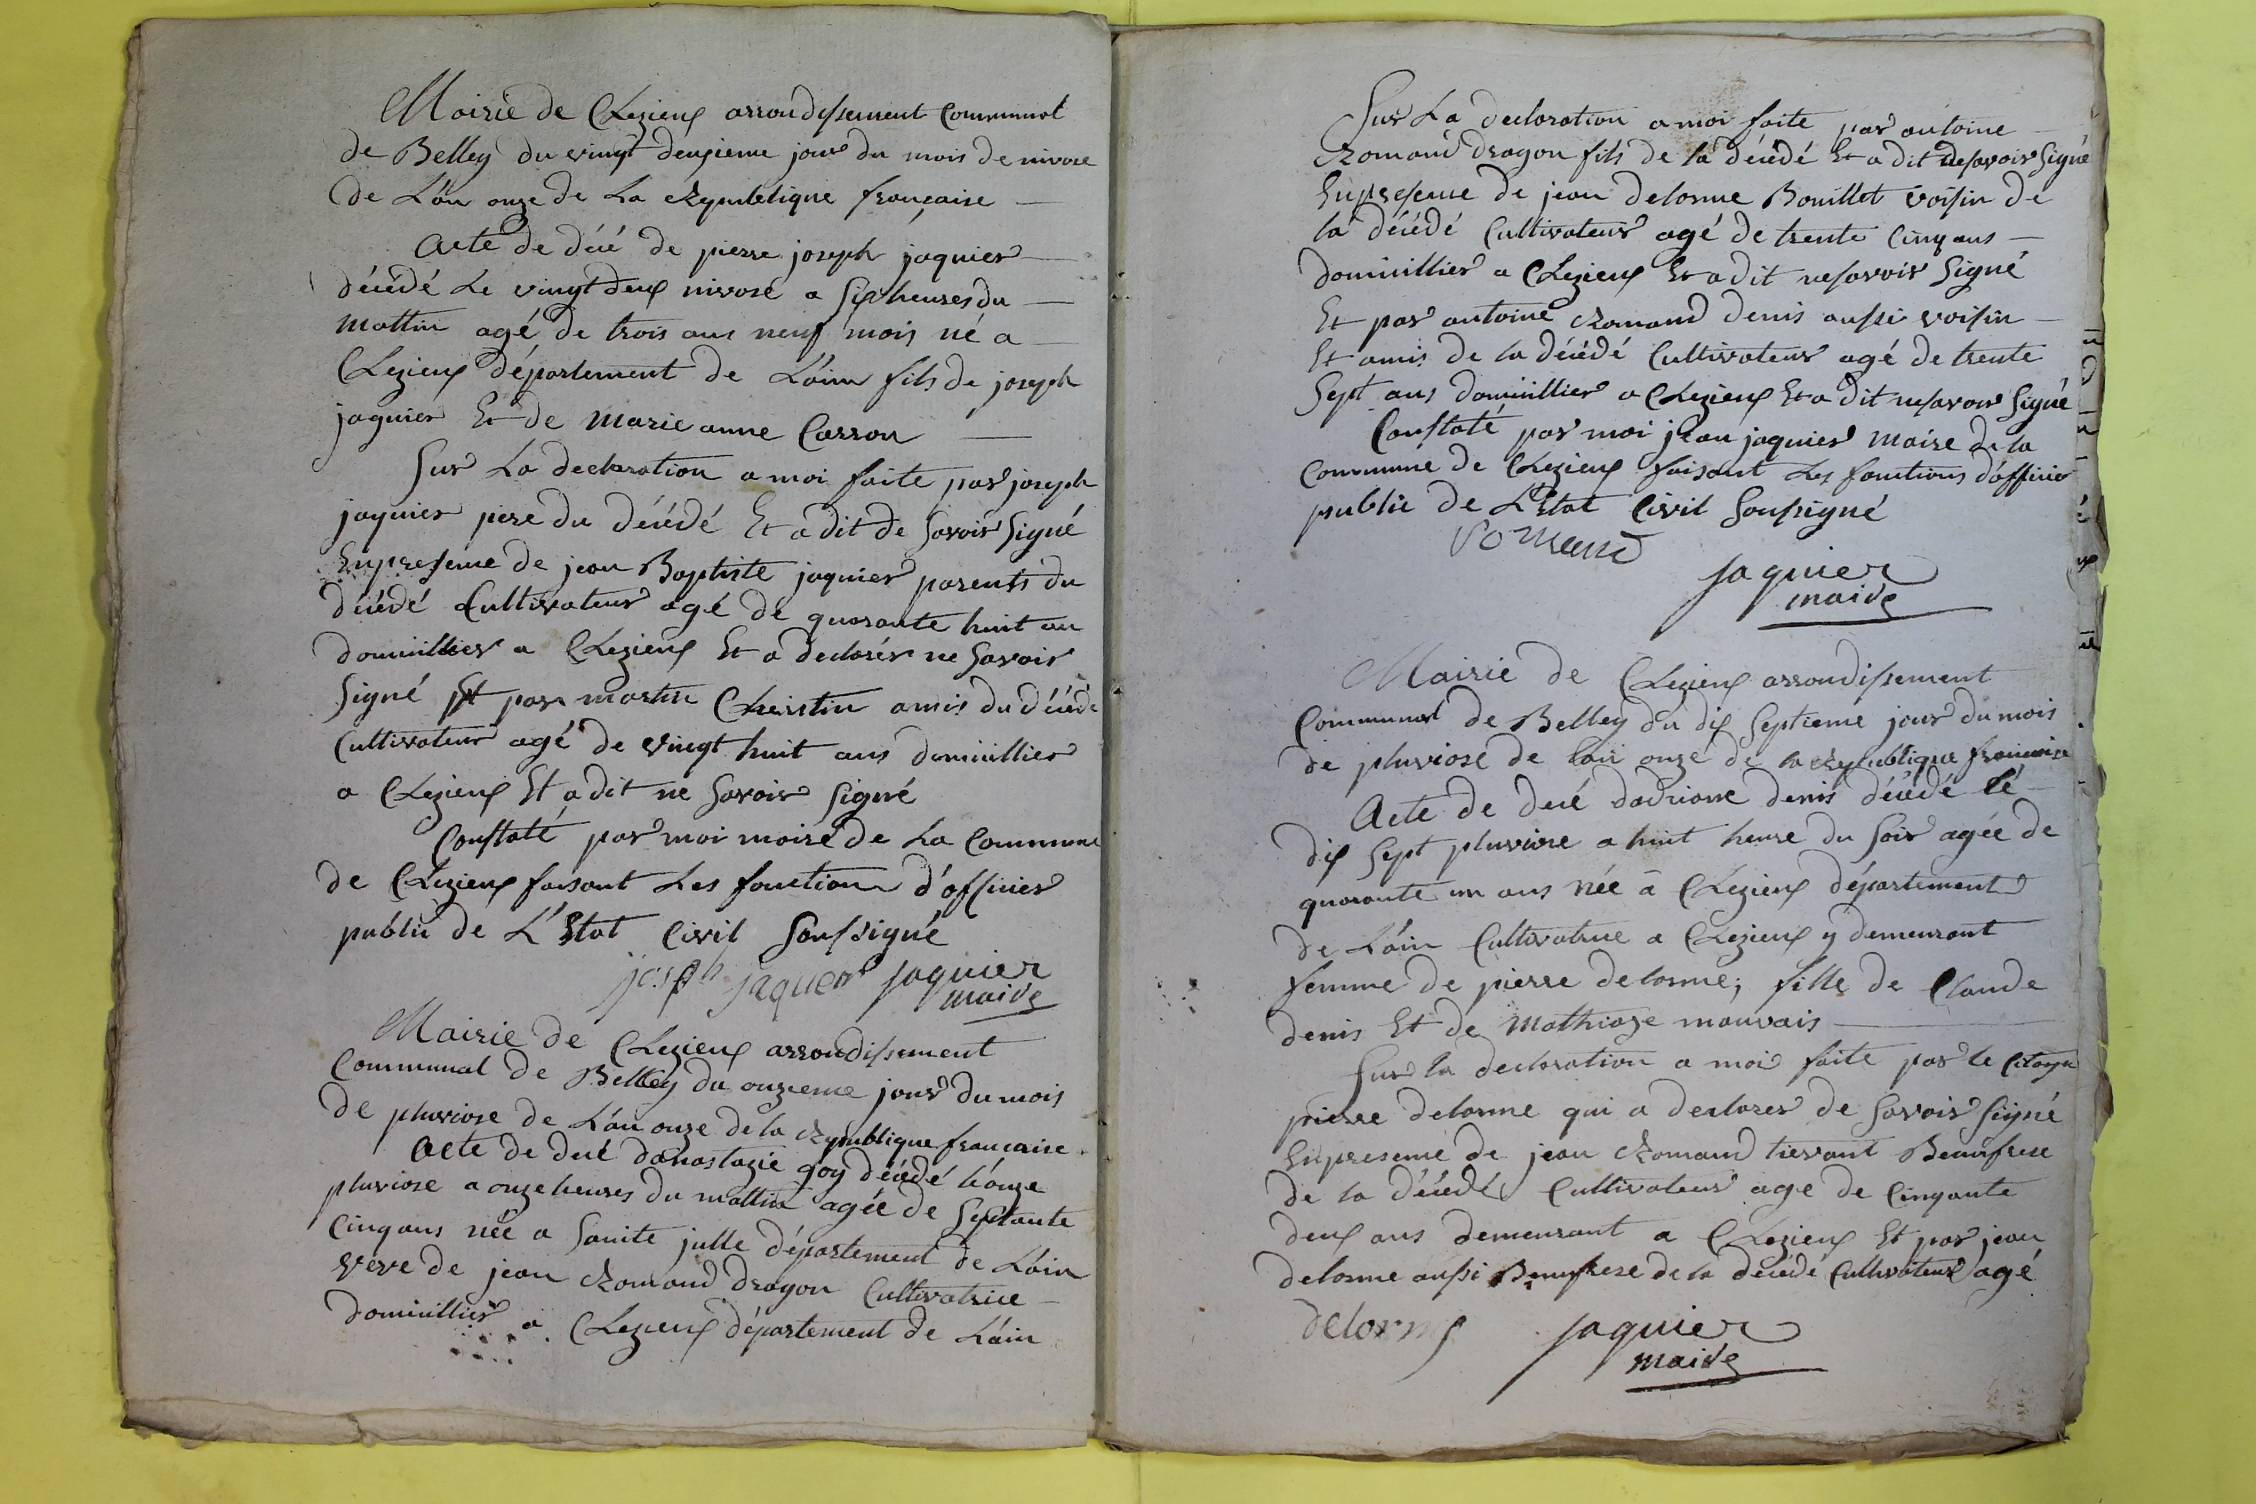 Mairie de Chezieux arrondissement Communal
de Belley du vingt deuxieme jour du mois de nivose
de L'an onze de La Republique française
Acte de décé de pierre joseph jaquier
décédé Le vingt deux nivose a six heures du
mattin agé de trois ans neuf mois né a
Chezieux département de L'ain fils de joseph
jaquier Et de marie anne Carron
Sur La declaration a moi faite par joseph
jaquier pere du décédé Et a dit de Savoir Signé
En presence de jean Baptiste jaquier parents du
décédé Cultivateur agé de quarante huit an
domicillier a Chezieux Et a declarér ne Savoir
Signé Et par martin Christin amis du décédé
Cultivateur agé de vingt huit ans domicillier
a Chezieux Et a dit ne Savoir Signé
Constaté par moi maire de La Commune
de Chezieux faisant Les fonction d'officier
public de L'Etat Civil Soussigné
joseph jaquer jaquier
maire
Mairie de Chezieux arrondissement
Communal de Belley du onzieme jour du mois
de pluviose de L'an onze de la Republique française
Acte de decé danastazie goy décédé L'onze
pluviose a onze heures du mattin agée de Septante
Cinq ans née a Sainte julle département de L'ain
veve de jean Romand dragon Cultivatrice
domicillier a Chezieux département de L'ain
Sur La declaration a moi faite par antoine
Romand dragon fils de la décédé Et a dit de savoir Signé
En presence de jean delorme Bouillet voisin de
la décédé Cultivateur agé de trente Cinq ans
domicillier a Chezieux Et a dit ne savoir Signé
Et par antoine Romand denis aussi voisin
Et amis de la décédé Cultivateur agé de trente
Sept ans domicillier a Chezieux Et a dit ne savoir Signé
Constaté par moi jean jaquier maire de la
Commune de Chezieux faisant Les fonctions d'officier
public de L'Etat Civil Soussigné
romand
jaquier
maire
Mairie de Chezieux arrondissement
Communal de Belley du dix Septieme jour du mois
de pluviose de l'an onze de la Republique francaise
Acte de decé dadriane denis décédé le
dix Sept pluviose a huit heure du Soir agée de
quarante un ans née a Chezieux département
de L'ain Cultivatrice a Chezieux y demeurant
femme de pierre delorme; fille de Claude
denis Et de Mathiaze mauvais
Sur la declaration a moi faite par le Citoyen
pierre delorme qui a declarer de Savoir Signé
En presence de jean Romand tievant Beaufrere
de la décédé Cultivateur age de Cinqante
deux ans demeurant a Chezieux Et par jean
delorme aussi Beaufrere de la décédé Cultivateur agé
delorme jaquier
maire